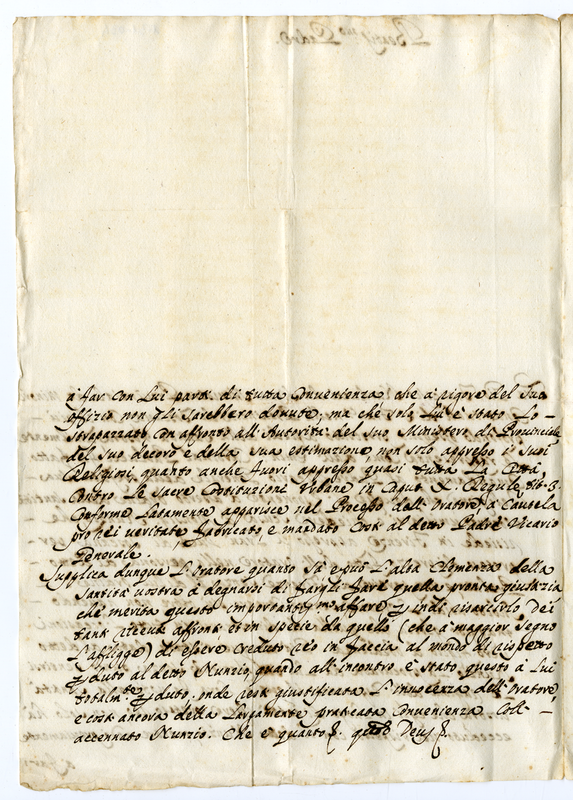 à far con Lui parti di tutta Convenienza che a rigore del Suo
Offizio non gli Sarebbero dovute; ma che solo Lui è stato lo
strapazzato con affronto all'Autorità del suo Ministero di Provinciale
del suo decoro e della Sua estimazione non solo appresso i Suoi
Religiosi, quanto anche fuori appresso quasi tutta La Città,
Contro Le Sacre Costituzioni Urbane in Caput X. Regulæ tit. 3.
Conforme Latamente apparisce nel Processo dall'Oratore, a Cautela
pro rei veritate fabricato, e mandato Costì al detto Padre Vicario
Generale.
Supplica dunque L'Oratore quanto Sa e può L'alta Clemenza della
Santità vostra à degnarsi di fargli fare quella pronta giustizia
che merita questo importantiss.mo affare, p indi risarcirlo dei
tanti ricevuti affronti et in specie da quello (che a maggior Segno
L'affligge) di essere creduto reo in faccia al mondo di rispetto
pduto al detto Nunzio, quando all'incontro è stato questo à Lui
totalm.te pduto. onde resti giustificata L'innocenza dell'Oratore,
e così ancora della Largamente praticata Convenienza Coll-
accennato Nunzio. Che è quanto &. quam Deus &.